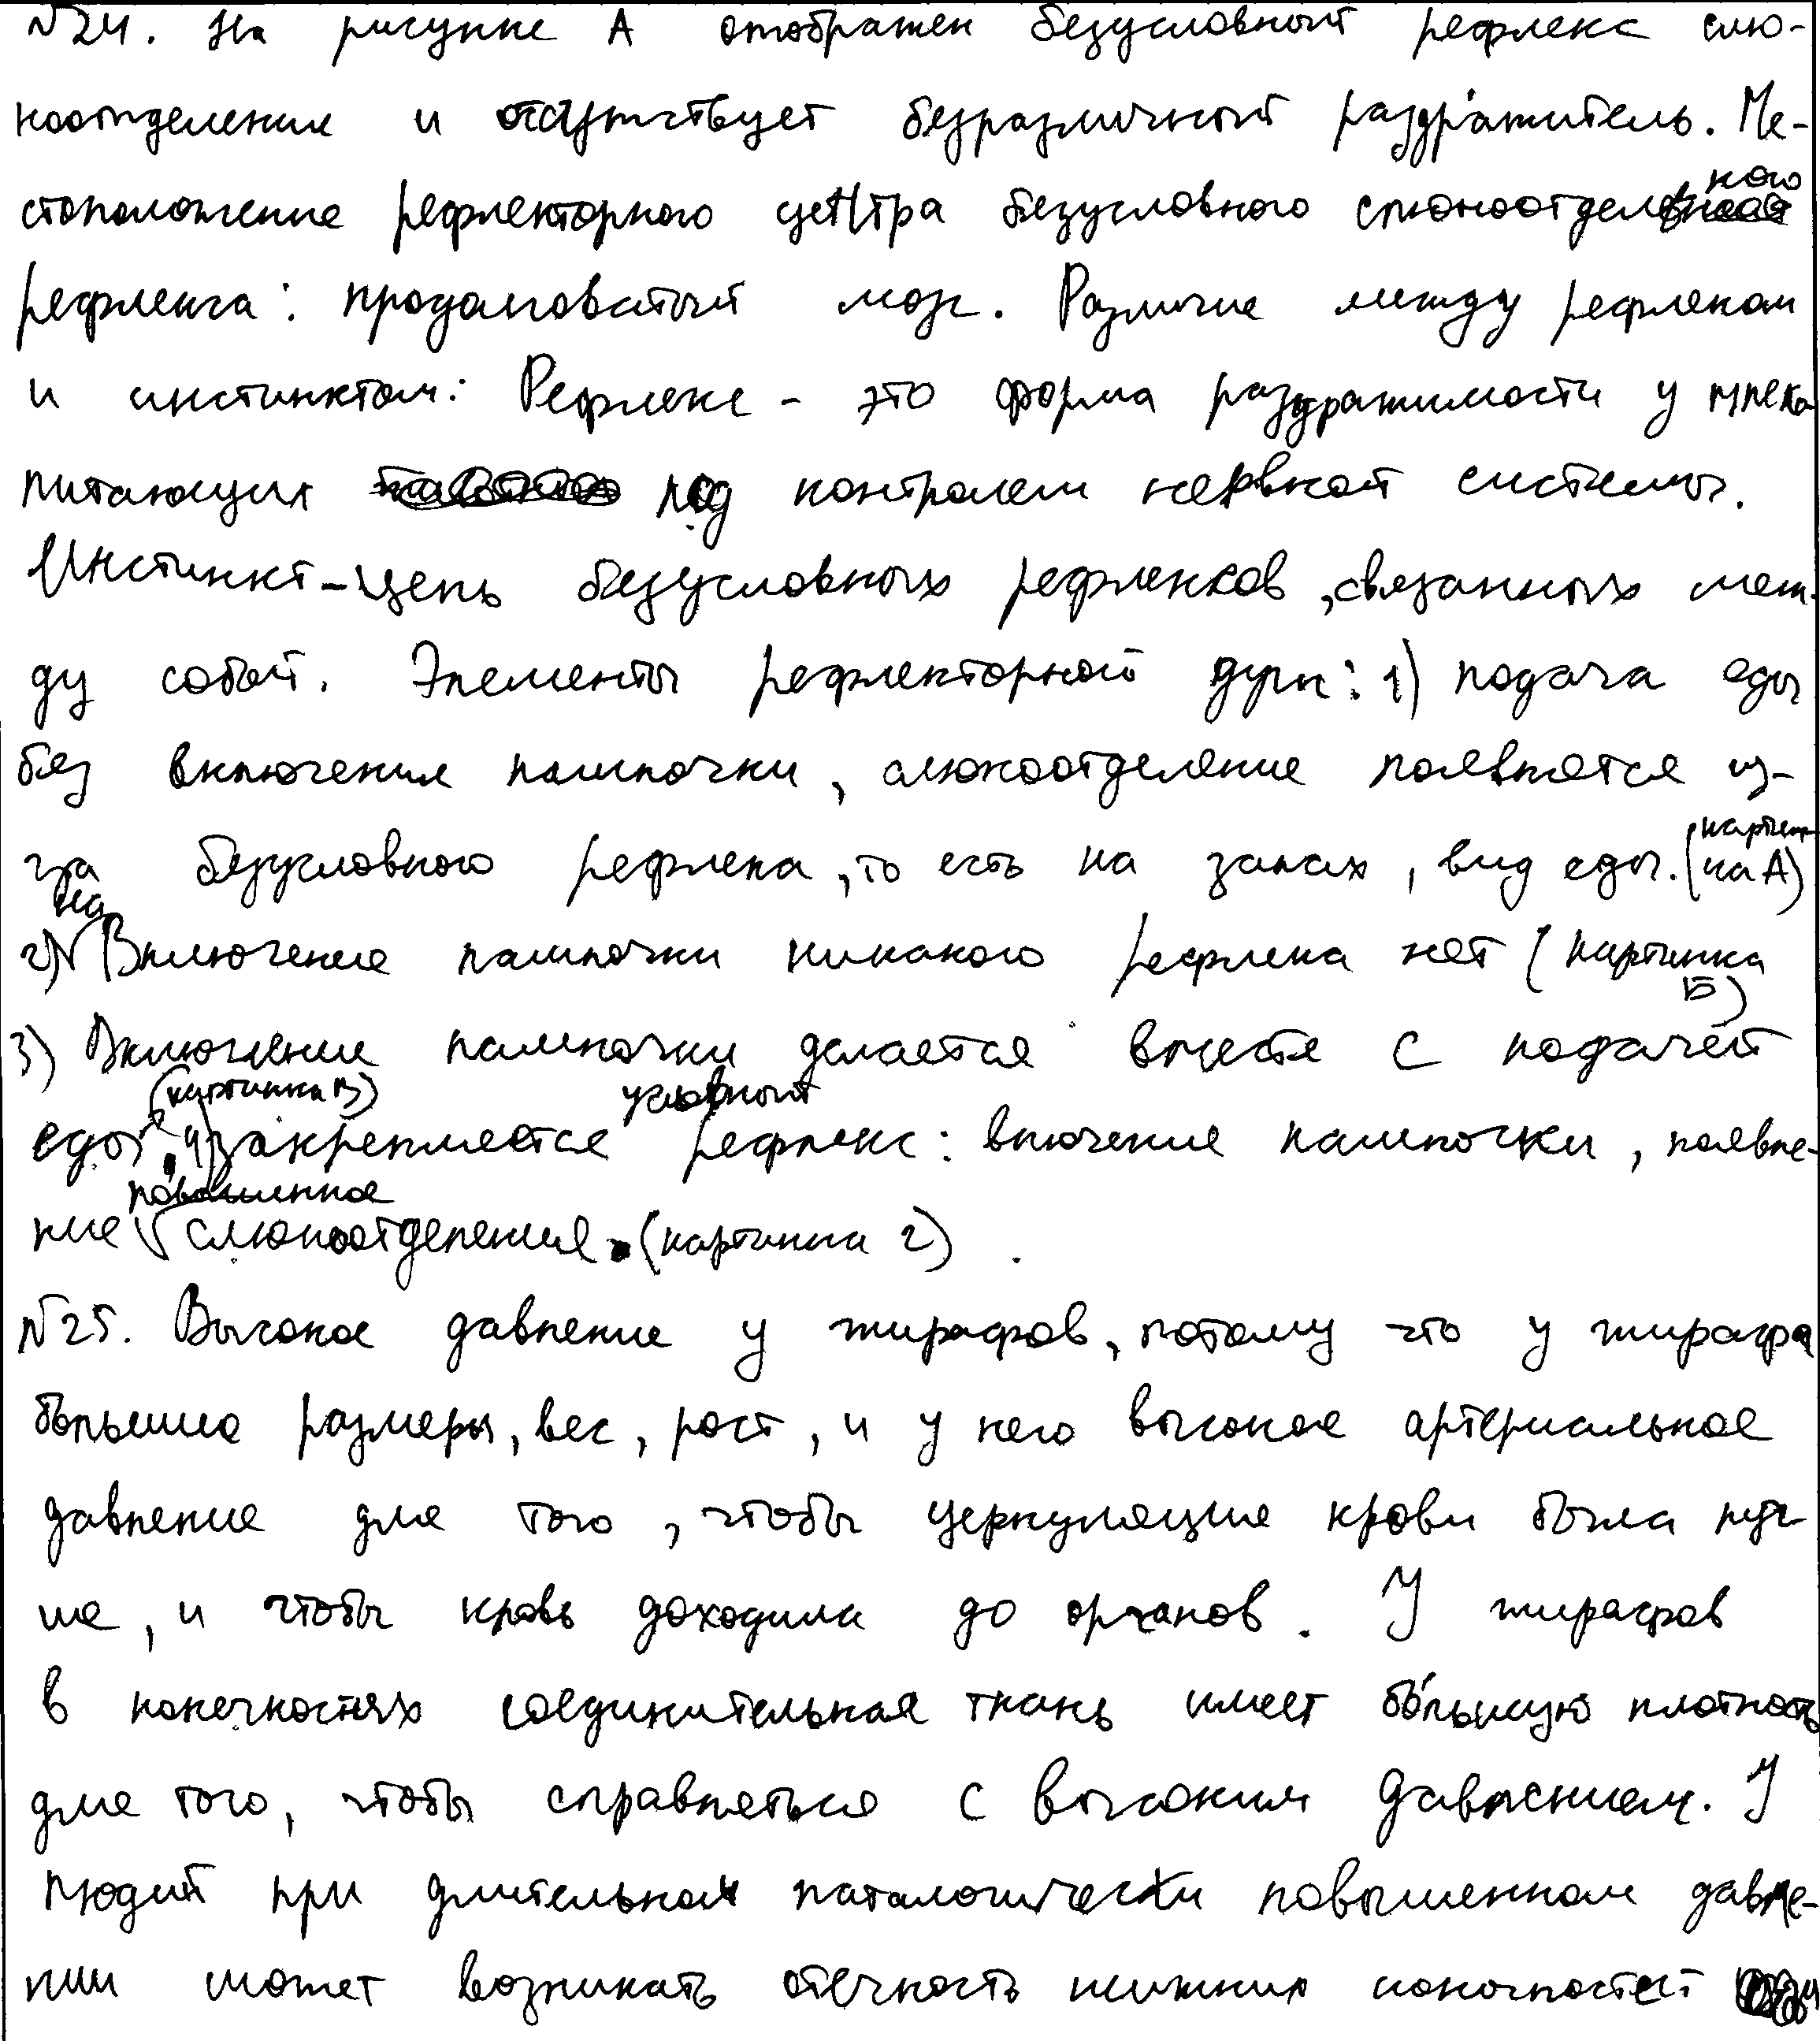 №24. На рисунке А отображен безусловный рефлекс слю-
ноотделения и отсутствует безразличный раздражитель. Ме-
стоположение рефлекторного центра безусловного слюноотделительного
рефлекса: продолговатый мозг. Различие между рефлексом
и инстинктом: Рефлекс - это форма раздражимости у млеко
питающих под контролем нервной системы.
Инстинкт - цепь безусловных рефлексов, связанных меж-
ду собой. Элементы рефлекторной дуги: 1) подача еды
без включения лампочки, слюноотделение появляется из-
за безусловного рефлекса, то есть на запах, вид еды. (картин-
ка А)
2) На Включение лампочки никакого рефлекса нет (картинка
Б)
3) Включение лампочки делается вместе с подачей
еды (картинка В) 4) закрепляется условный рефлекс: включение лампочки, появле-
ние повышенное слюноотделение. (картинка г)
№25. Высокое давление у жирафов, потому что у жирафа
большие размеры, вес, рост, и у него высокое артериальное
давление для того, чтобы церкуляция крови была луч
ше, и чтобы кровь доходила до органов. У жирафов
в конечностях соединительная ткань имеет бо́льшую плотность
для того, чтобы справляться с высоким давлением. У
людей при длительном паталогически повышенном давле-
нии может возникать отечность нижних конечностей